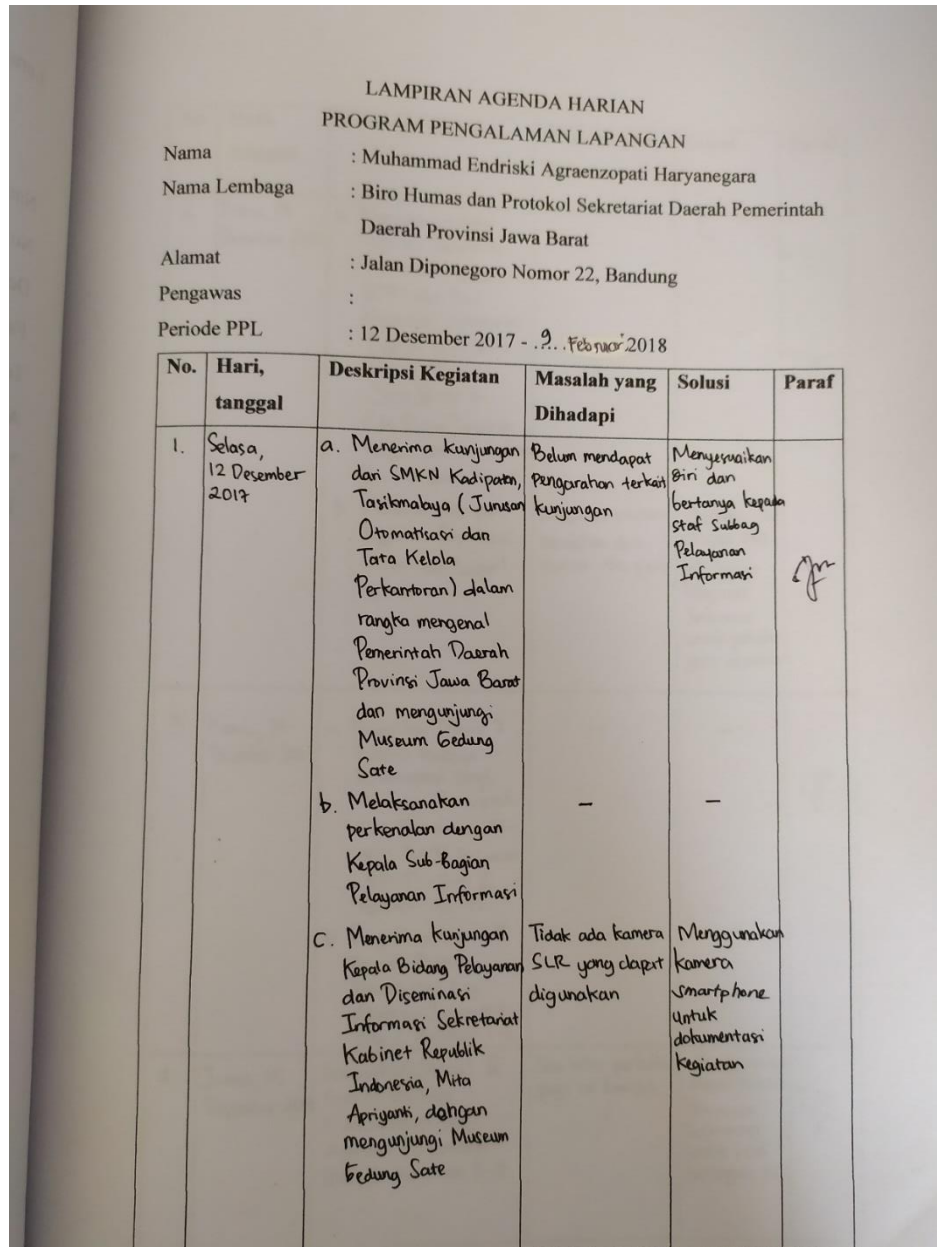 LAMPIRAN AGENDA HARIAN
PROGRAM PENGALAMAN LAPANGAN
Nama : Muhammad Endriski Agraenzopati Haryanegara
Nama Lembaga : Biro Humas dan Protokol Sekretariat Daerah Pemerintah
Daerah Provinsi Jawa Barat
Alamat : Jalan Diponegoro Nomor 22, Bandung
Pengawas :
Periode PPL : 12 Desember 2017 - .9... Februari 2018
No. Hari, tanggal Deskripsi Kegiatan Masalah yang Dihadapi Solusi Paraf
1. Selasa,
12 Desember
2017
a. Menerima kunjungan
dari SMKN Kadipaten,
Tasikmalaya (Jurusan
Otomatisasi dan
Tata Kelola
Perkantoran) dalam
rangka mengenal
Pemerintah Daerah
Provinsi Jawa Barat
dan mengunjungi
Museum Gedung
Sate
Belum mendapat
Pengarahan terkait
kunjungan
Menyesuaikan
diri dan
bertanya kepada
staf Subbag
Pelayanan
Informasi
b. Melaksanakan
perkenalan dengan
Kepala Sub-Bagian
Pelayanan Informasi
–
–
C. Menerima kunjungan
Kepala Bidang Pelayanan
dan Diseminasi
Informasi Sekretariat
Kabinet Republik
Indonesia, Mita
Apriyanti, dengan
mengunjungi Museum
Gedung Sate
Tidak ada kamera
SLR yang dapat
digunakan
Menggunakan
kamera
smartphone
untuk
dokumentasi
kegiatan